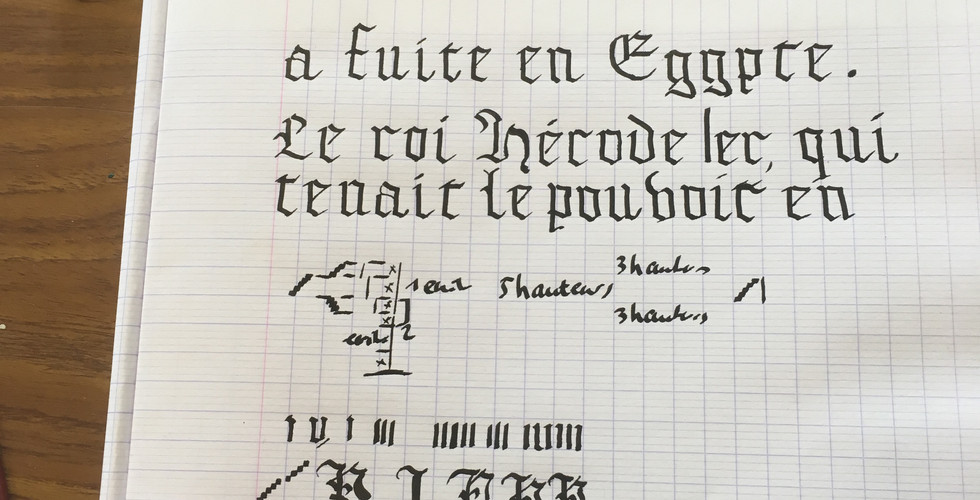 a fuite en Eggpte.
Le roi Hérode Ier, qui
tenait le pouvoir en
3 hauteurs
1 5 hauteurs
3 hauteurs
2